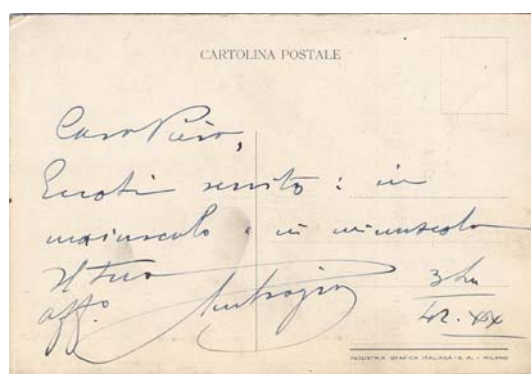 CARTOLINA POSTALE
Caro Piero,
Eccoti servito: in
maiuscolo e in minuscolo
Il tuo
aff.
42. XX
INDUSTRIA GRAFICA ITALIANA - S. A. - MILANO